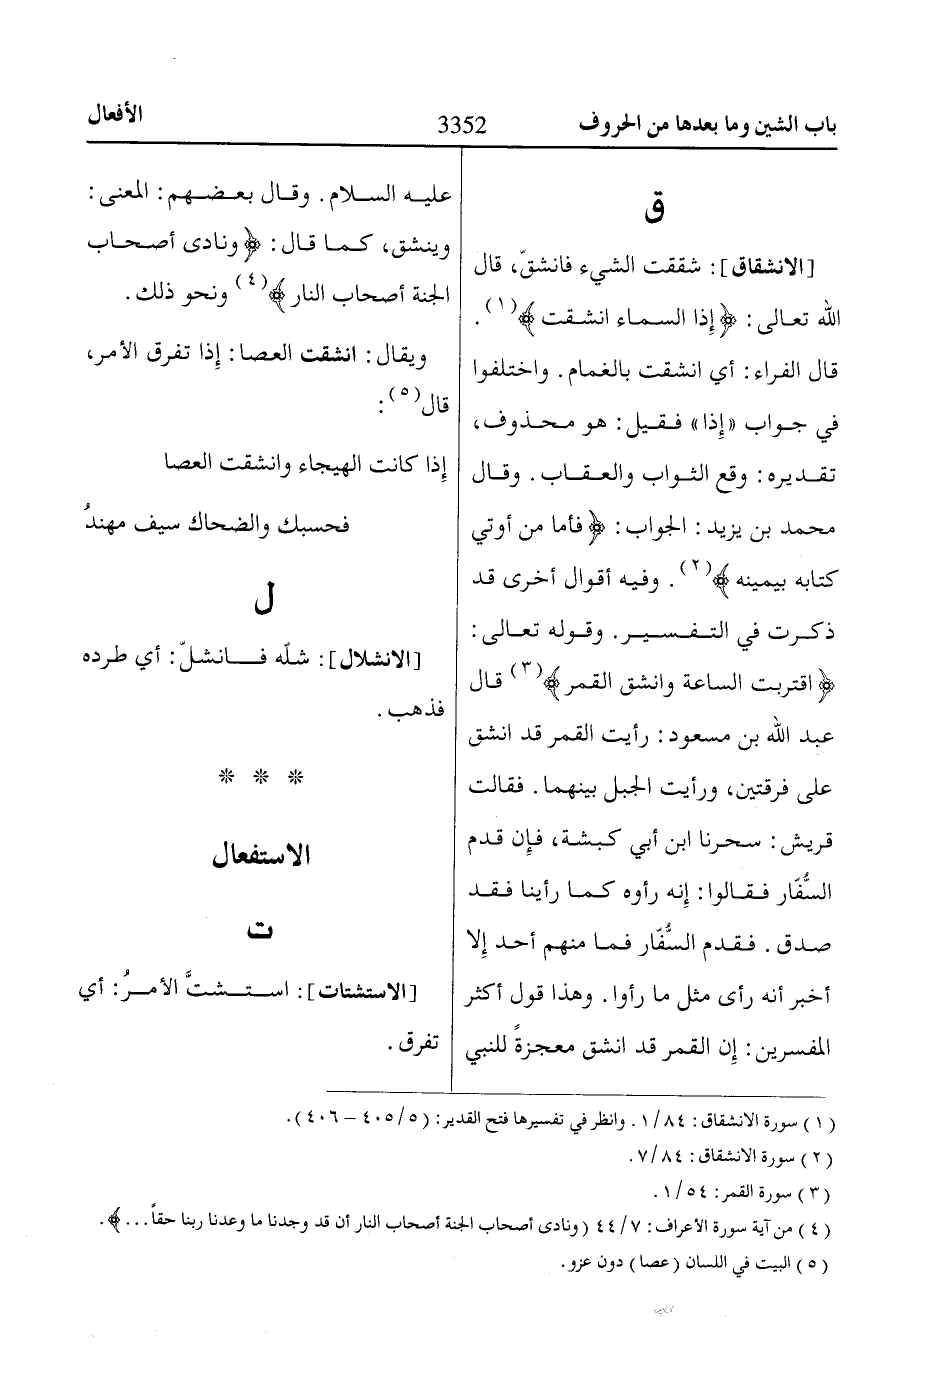 باب الشين وما بعدها من الحروف
3352
الأفعال
ق
[الانشقاق]: شققت الشيء فانشقّ، قال
الله تعالى: ﴿إذا السماء انشقت﴾(١).
قال الفراء: أي انشقت بالغمام. واختلفوا
في جواب «إذا» فقيل: هو محذوف،
تقديره: وقع الثواب والعقاب. وقال
محمد بن يزيد: الجواب: ﴿فأما من أوتي
كتابه بيمينه﴾(٢). وفيه أقوال أخرى قد
ذكرت في التفسير. وقوله تعالى:
﴿اقتربت الساعة وانشق القمر﴾(٣) قال
عبد الله بن مسعود: رأيت القمر قد انشق
على فرقتين، ورأيت الجبل بينهما. فقالت
قريش: سحرنا ابن أبي كبشة، فإن قدم
السُّفّار فقالوا: إنه رأوه كما رأينا فقد
صدق. فقدم السُّفّار فما منهم أحد إلا
أخبر أنه رأى مثل ما رأوا. وهذا قول أكثر
المفسرين: إن القمر قد انشق معجزةً للنبي
عليه السلام. وقال بعضهم: المعنى:
وينشق، كما قال: ﴿ونادى أصحاب
الجنة أصحاب النار﴾(٤) ونحو ذلك.
ويقال: انشقت العصا: إذا تفرق الأمر،
قال(٥):
إذا كانت الهيجاء وانشقت العصا
فحسبك والضحاك سيف مهندُ
ل
[الانشلال]: شلّه فانشلّ: أي طرده
فذهب.
* * *
الاستفعال
ت
[الاستشتات]: استشتَّ الأمرُ: أي
تفرق.
(١) سورة الانشقاق: ٨٤/ ١. وانظر في تفسيرها فتح القدير: (٥/ ٤٠٥ – ٤٠٦).
(٢) سورة الانشقاق: ٨٤/ ٧.
(٣) سورة القمر: ٥٤/ ١.
(٤) من آية سورة الأعراف: ٧/ ٤٤ (ونادى أصحاب الجنة أصحاب النار أن قد وجدنا ما وعدنا ربنا حقاً...﴾.
(٥) البيت في اللسان (عصا) دون عزو.